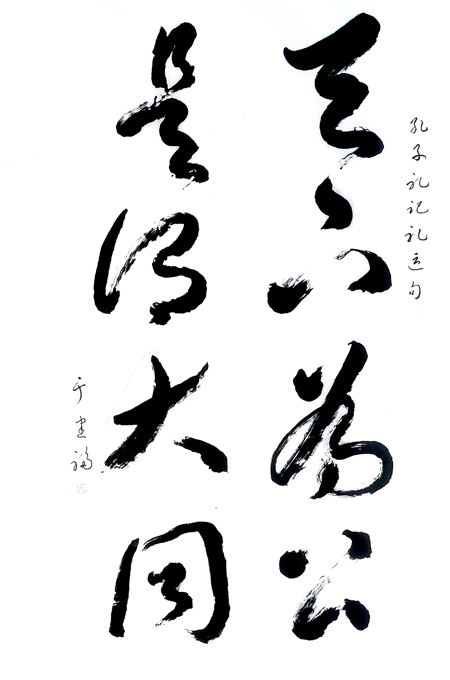 孔子礼记礼运句
天下为公
是谓大同
于建福